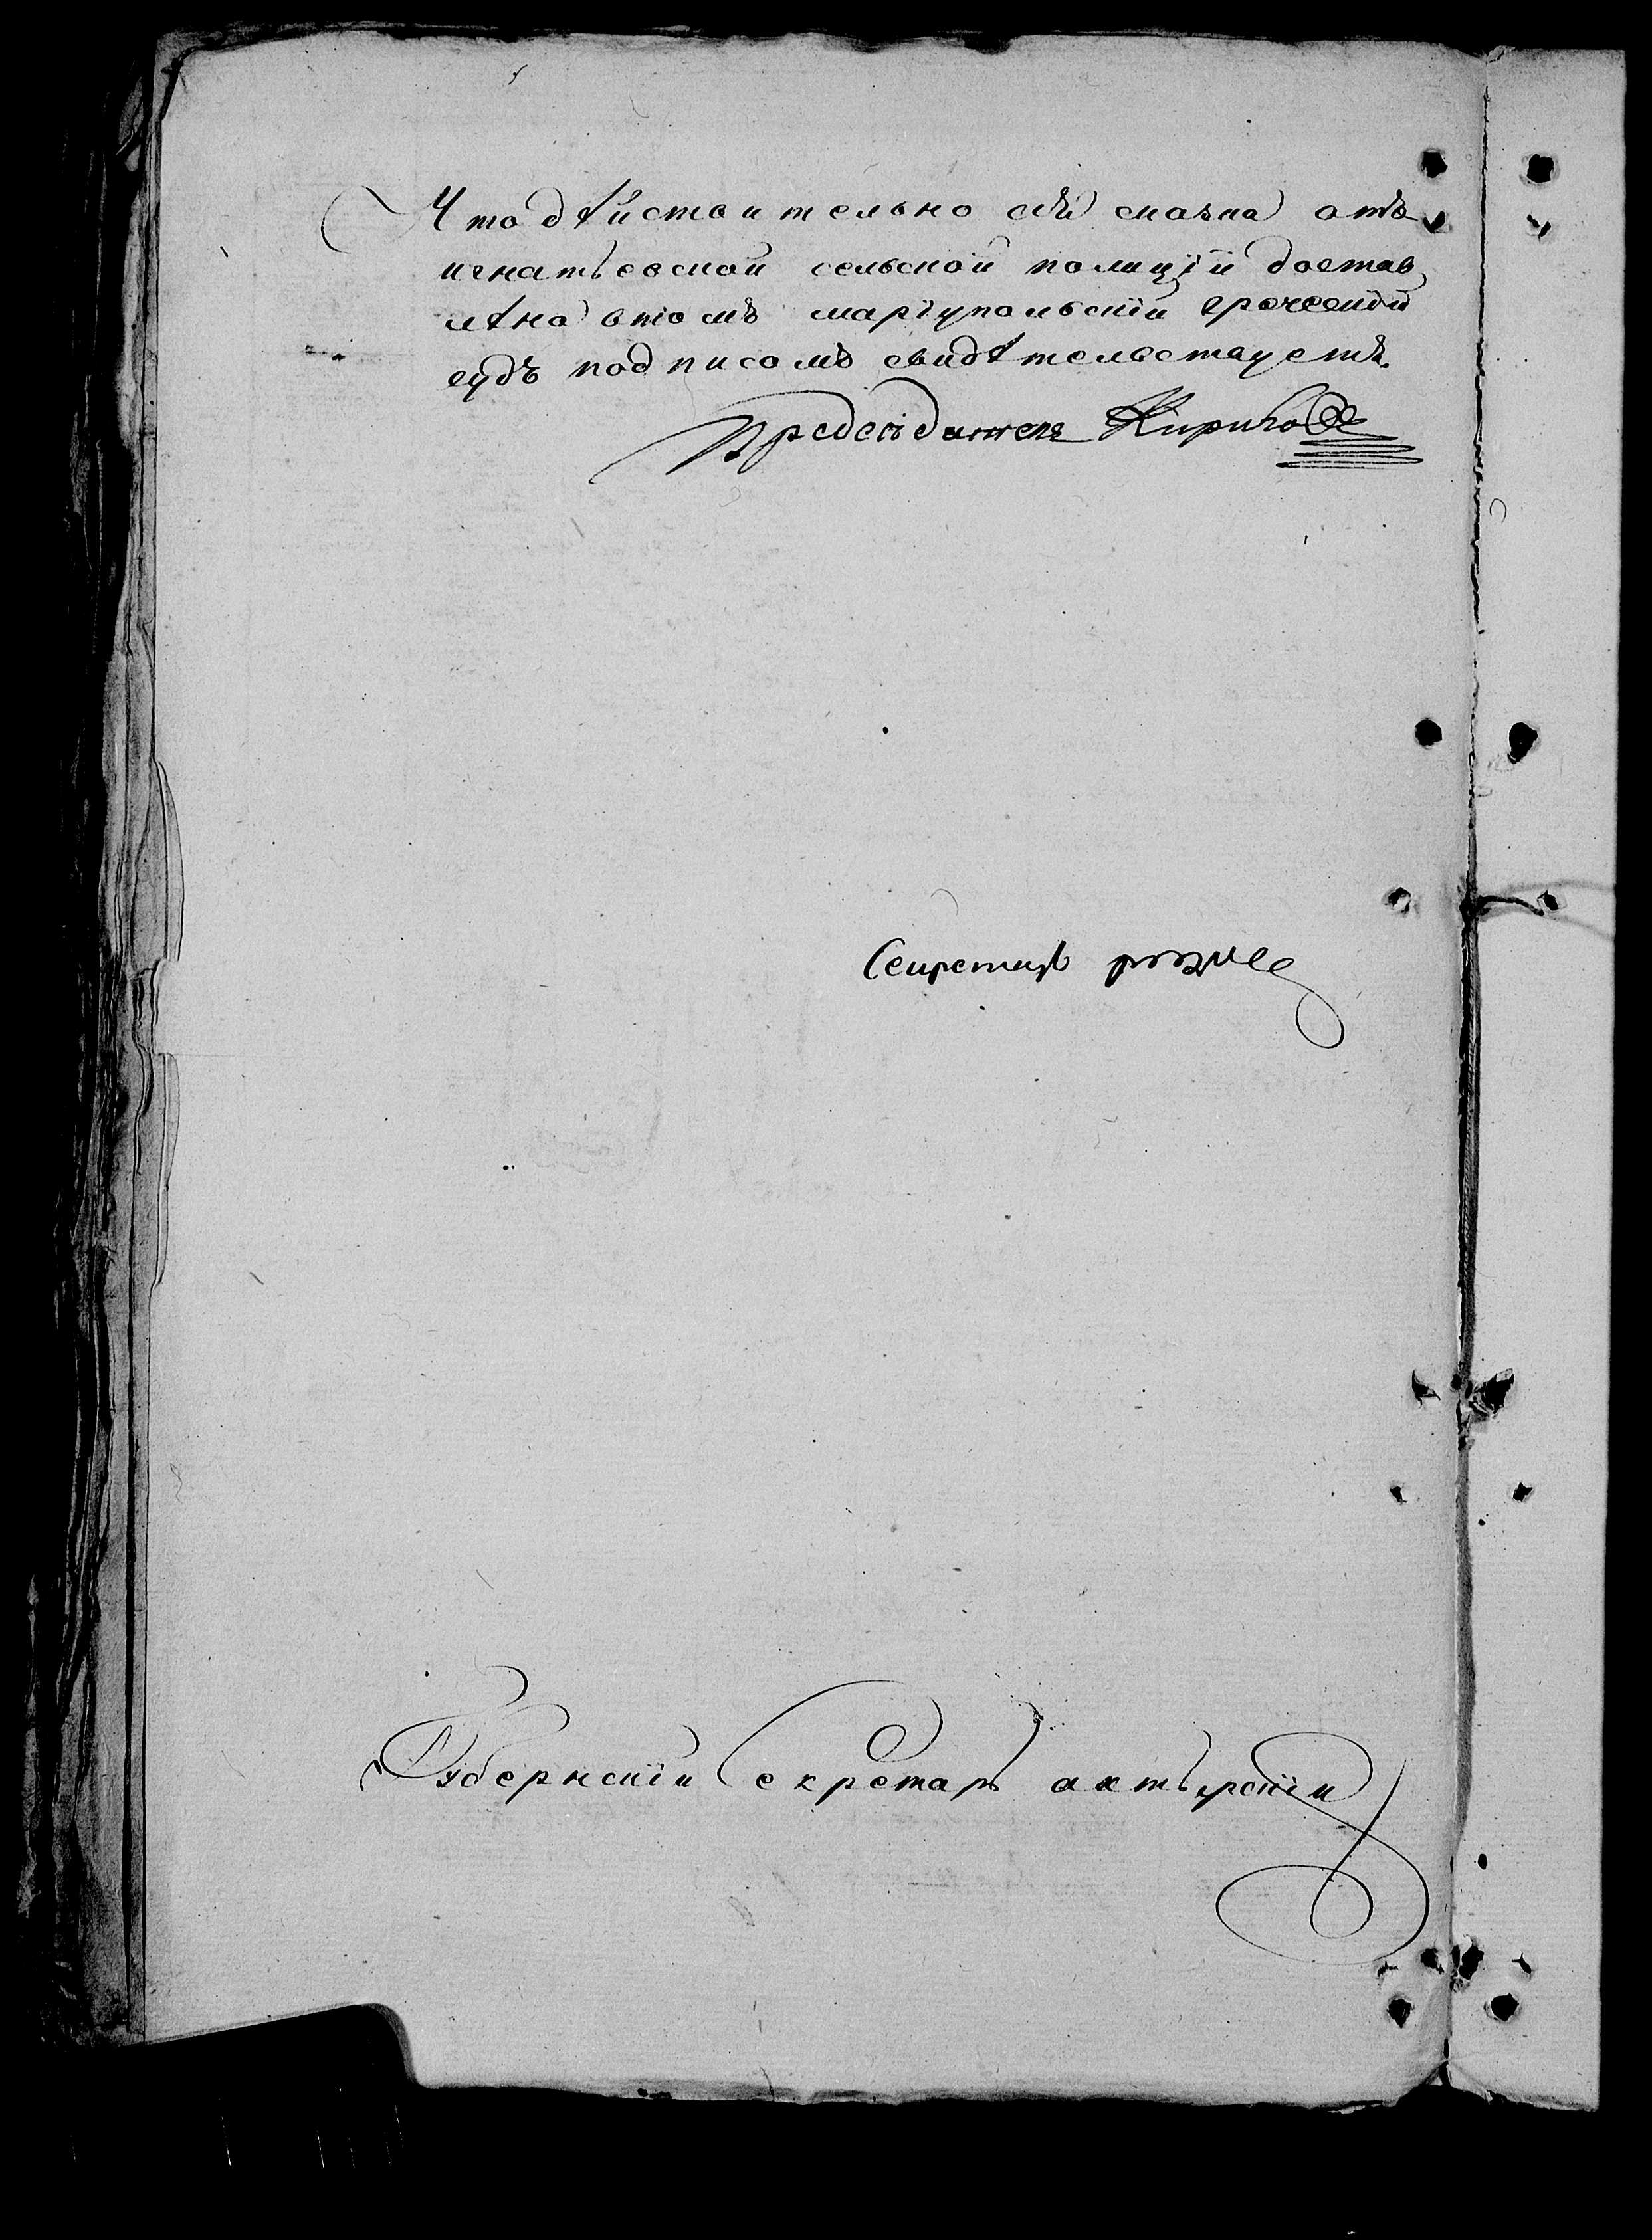 Что дѣйствительно сѣй сказка отъ
игнатьевской сельской полицїи достав
лѣна втомъ марїупольскїй греческїй
судъ подписомъ свидѣтельствуетъ.
Председатель Кирико
Секретарь
Губернскїй Секретарь ахтырскїй